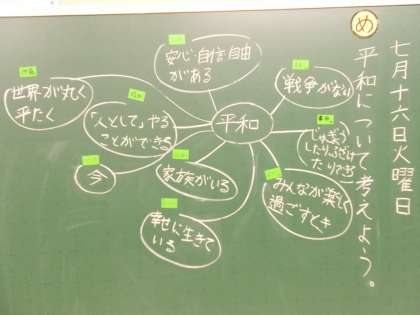 め
七月十六日火曜日
平和について考えよう。
平和
安心・自信・自由
がある
戦争がない
じゅぎょう
したりふざけ
たりできる
みんなが楽しく
過ごすとき
家族がいる
幸せに生きて
いる
今
「人として」やる
ことができる
世界が丸く
平たく